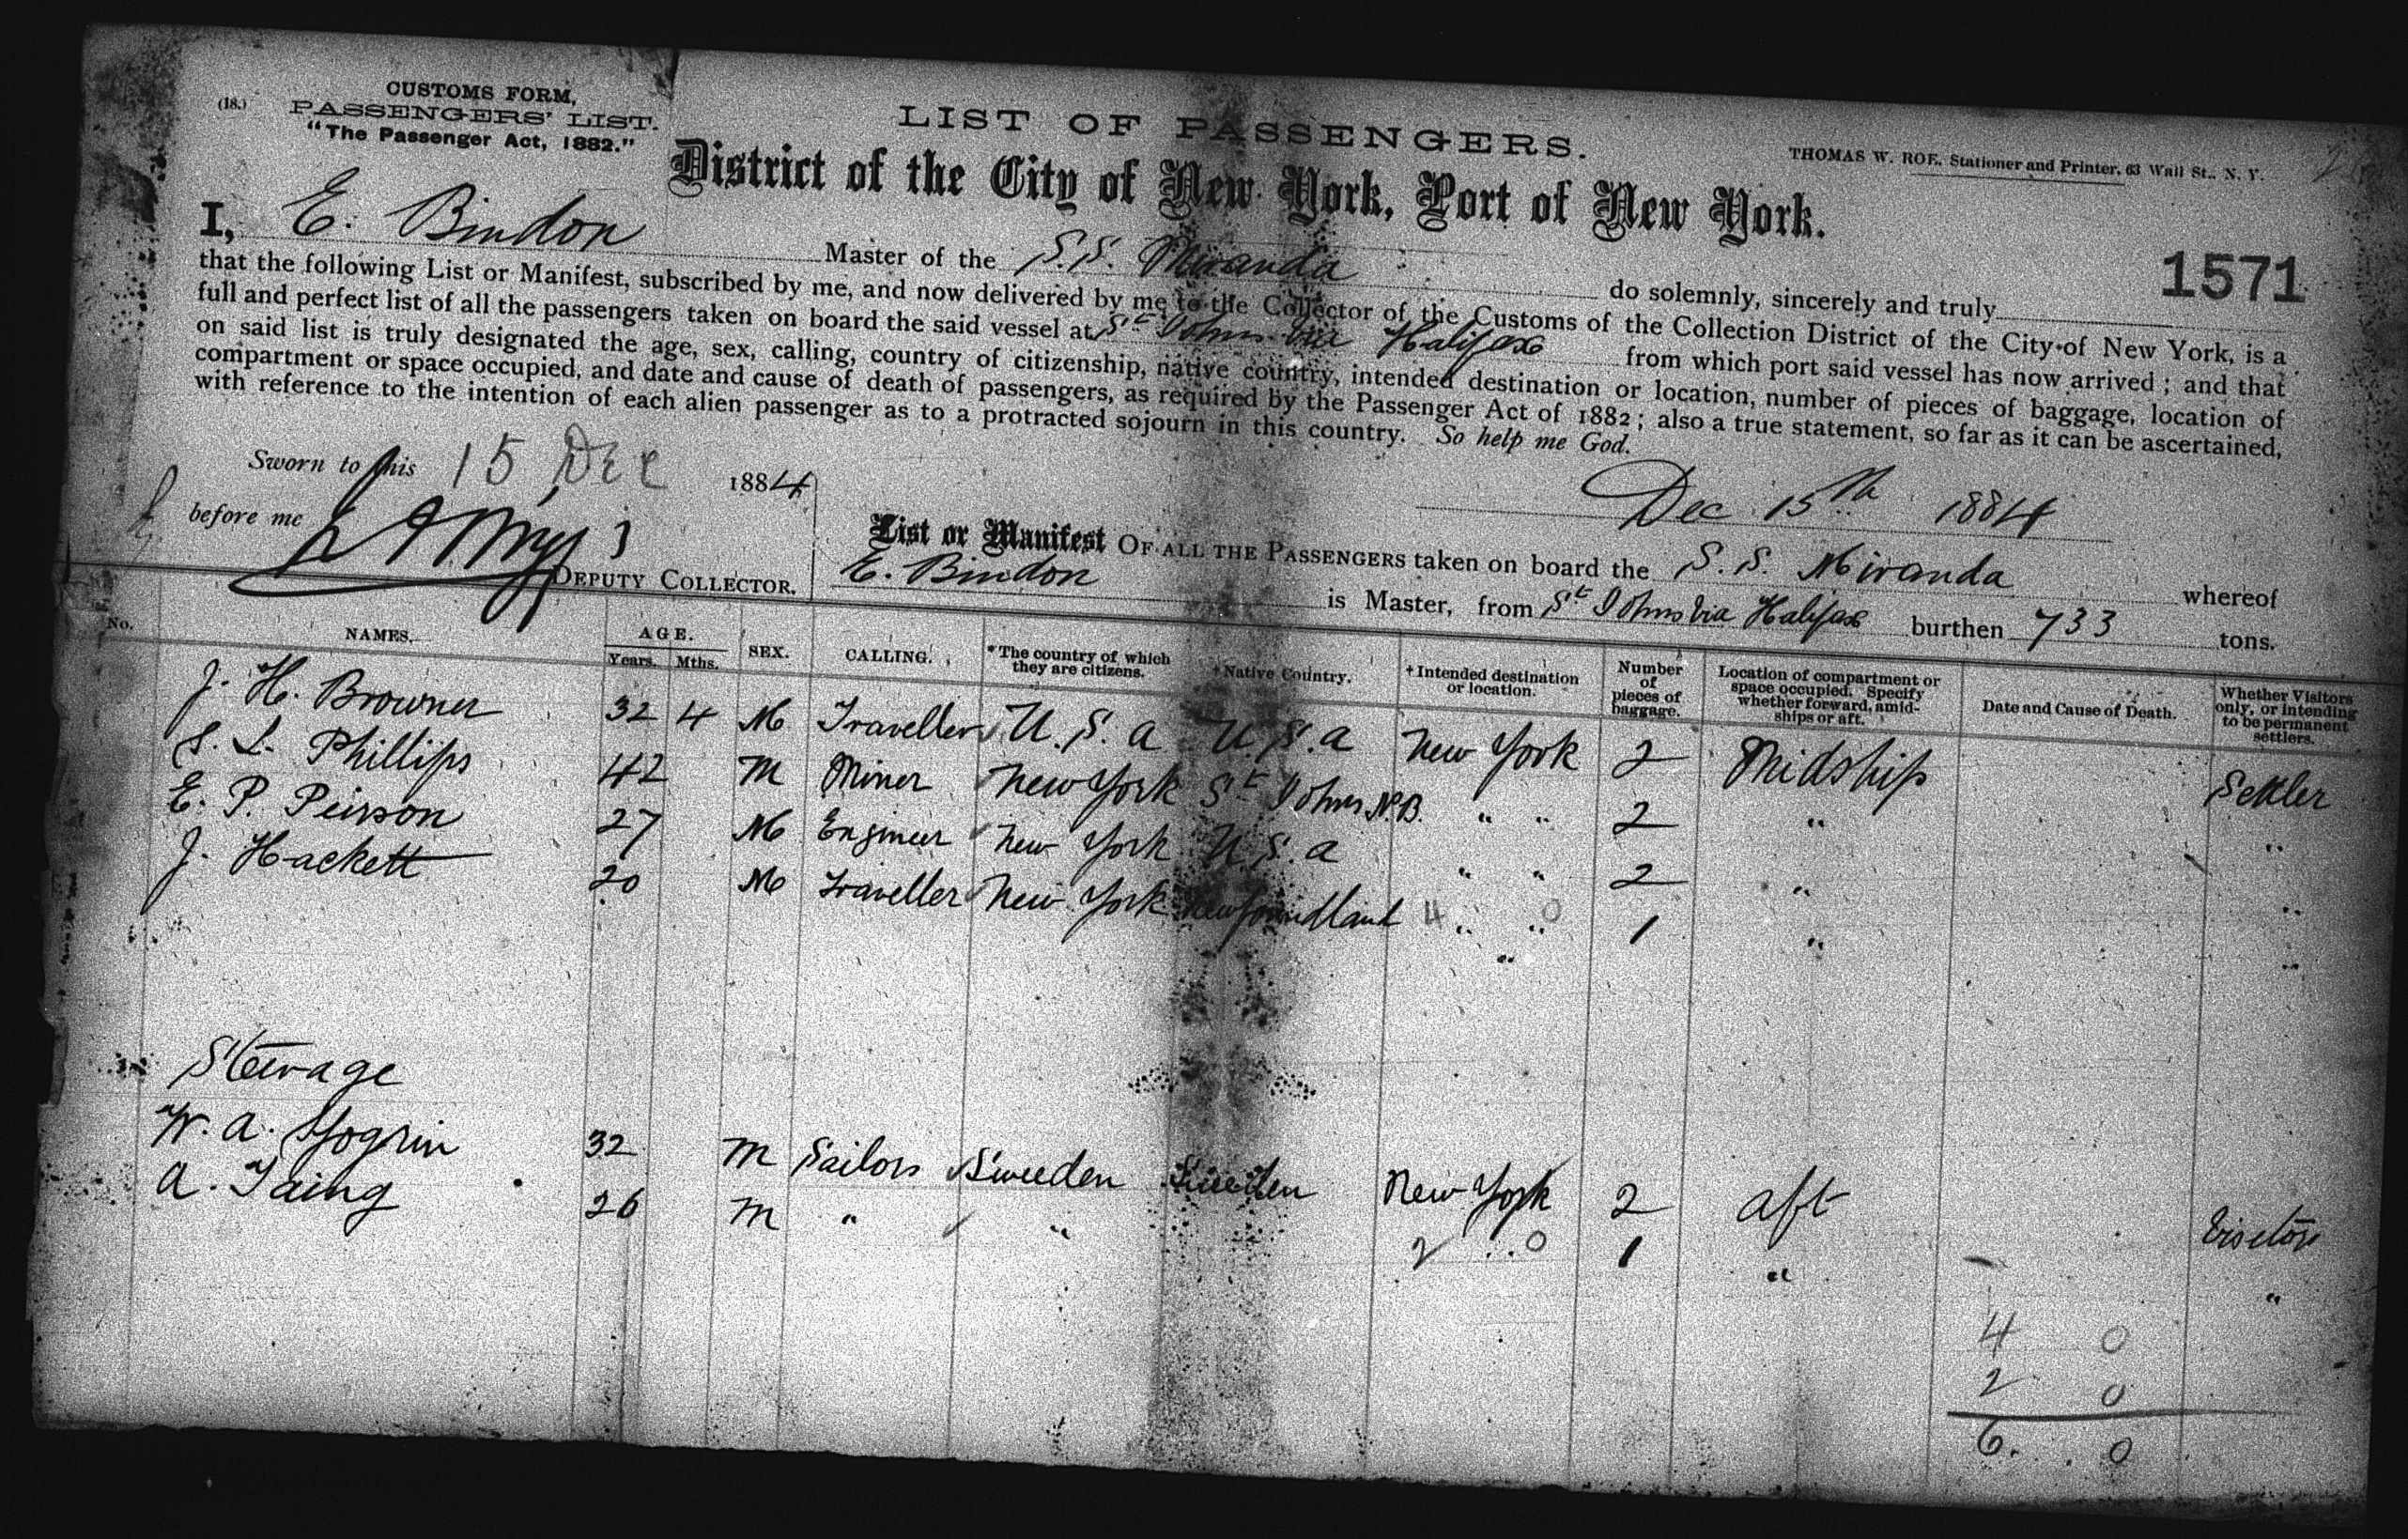 (18.)
CUSTOMS FORM,
PASSENGERS' LIST.
"The Passenger Act, 1882."
LIST OF PASSENGERS.
THOMAS W. ROE, Stationer and Printer, 63 Wall St., N. Y.
District of the City of New York, Port of New York.
1571
I, E. Bindon Master of the S.S. Miranda do solemnly, sincerely and truly
that the following List or Manifest, subscribed by me, and now delivered by me to the Collector of the Customs of the Collection District of the City of New York, is a
full and perfect list of all the passengers taken on board the said vessel at St Johns via Halifax from which port said vessel has now arrived; and that
on said list is truly designated the age, sex, calling, country of citizenship, native country, intended destination or location, number of pieces of baggage, location of
compartment or space occupied, and date and cause of death of passengers, as required by the Passenger Act of 1882; also a true statement, so far as it can be ascertained,
with reference to the intention of each alien passenger as to a protracted sojourn in this country. So help me God.
Sworn to this 15 Dec 1884
Dec 15th 1884
before me
DEPUTY COLLECTOR.
List or Manifest OF ALL THE PASSENGERS taken on board the S. S. Miranda whereof
E. Bindon is Master, from St Johns via Halifax burthen 733 tons.
No. NAMES. AGE. Years. Mths. SEX. CALLING. *The country of which they are citizens. +Native Country. +Intended destination or location. Number of pieces of baggage. Location of compartment or space occupied. Specify whether forward, amidships or aft. Date and Cause of Death. Whether Visitors only, or intending to be permanent settlers.
J. H. Browner 32 4 M Traveller U.S.a U.S.a New York 2 Midship Settler
S. L. Phillips 42 M Miner New York St Johns N.B. " " 2 " "
E. P. Peirson 27 M Engineer New York U.S.a " " 2 " "
J. Hackett 20 M Traveller New York Newfoundland 4 " " 0 1 " "
Steerage
W. A. 32 M Sailors Sweeden Sweeden New York 2 aft Visetors
A. 26 M " " 2 " 0 1 " "
4 0
2 0
6. 0